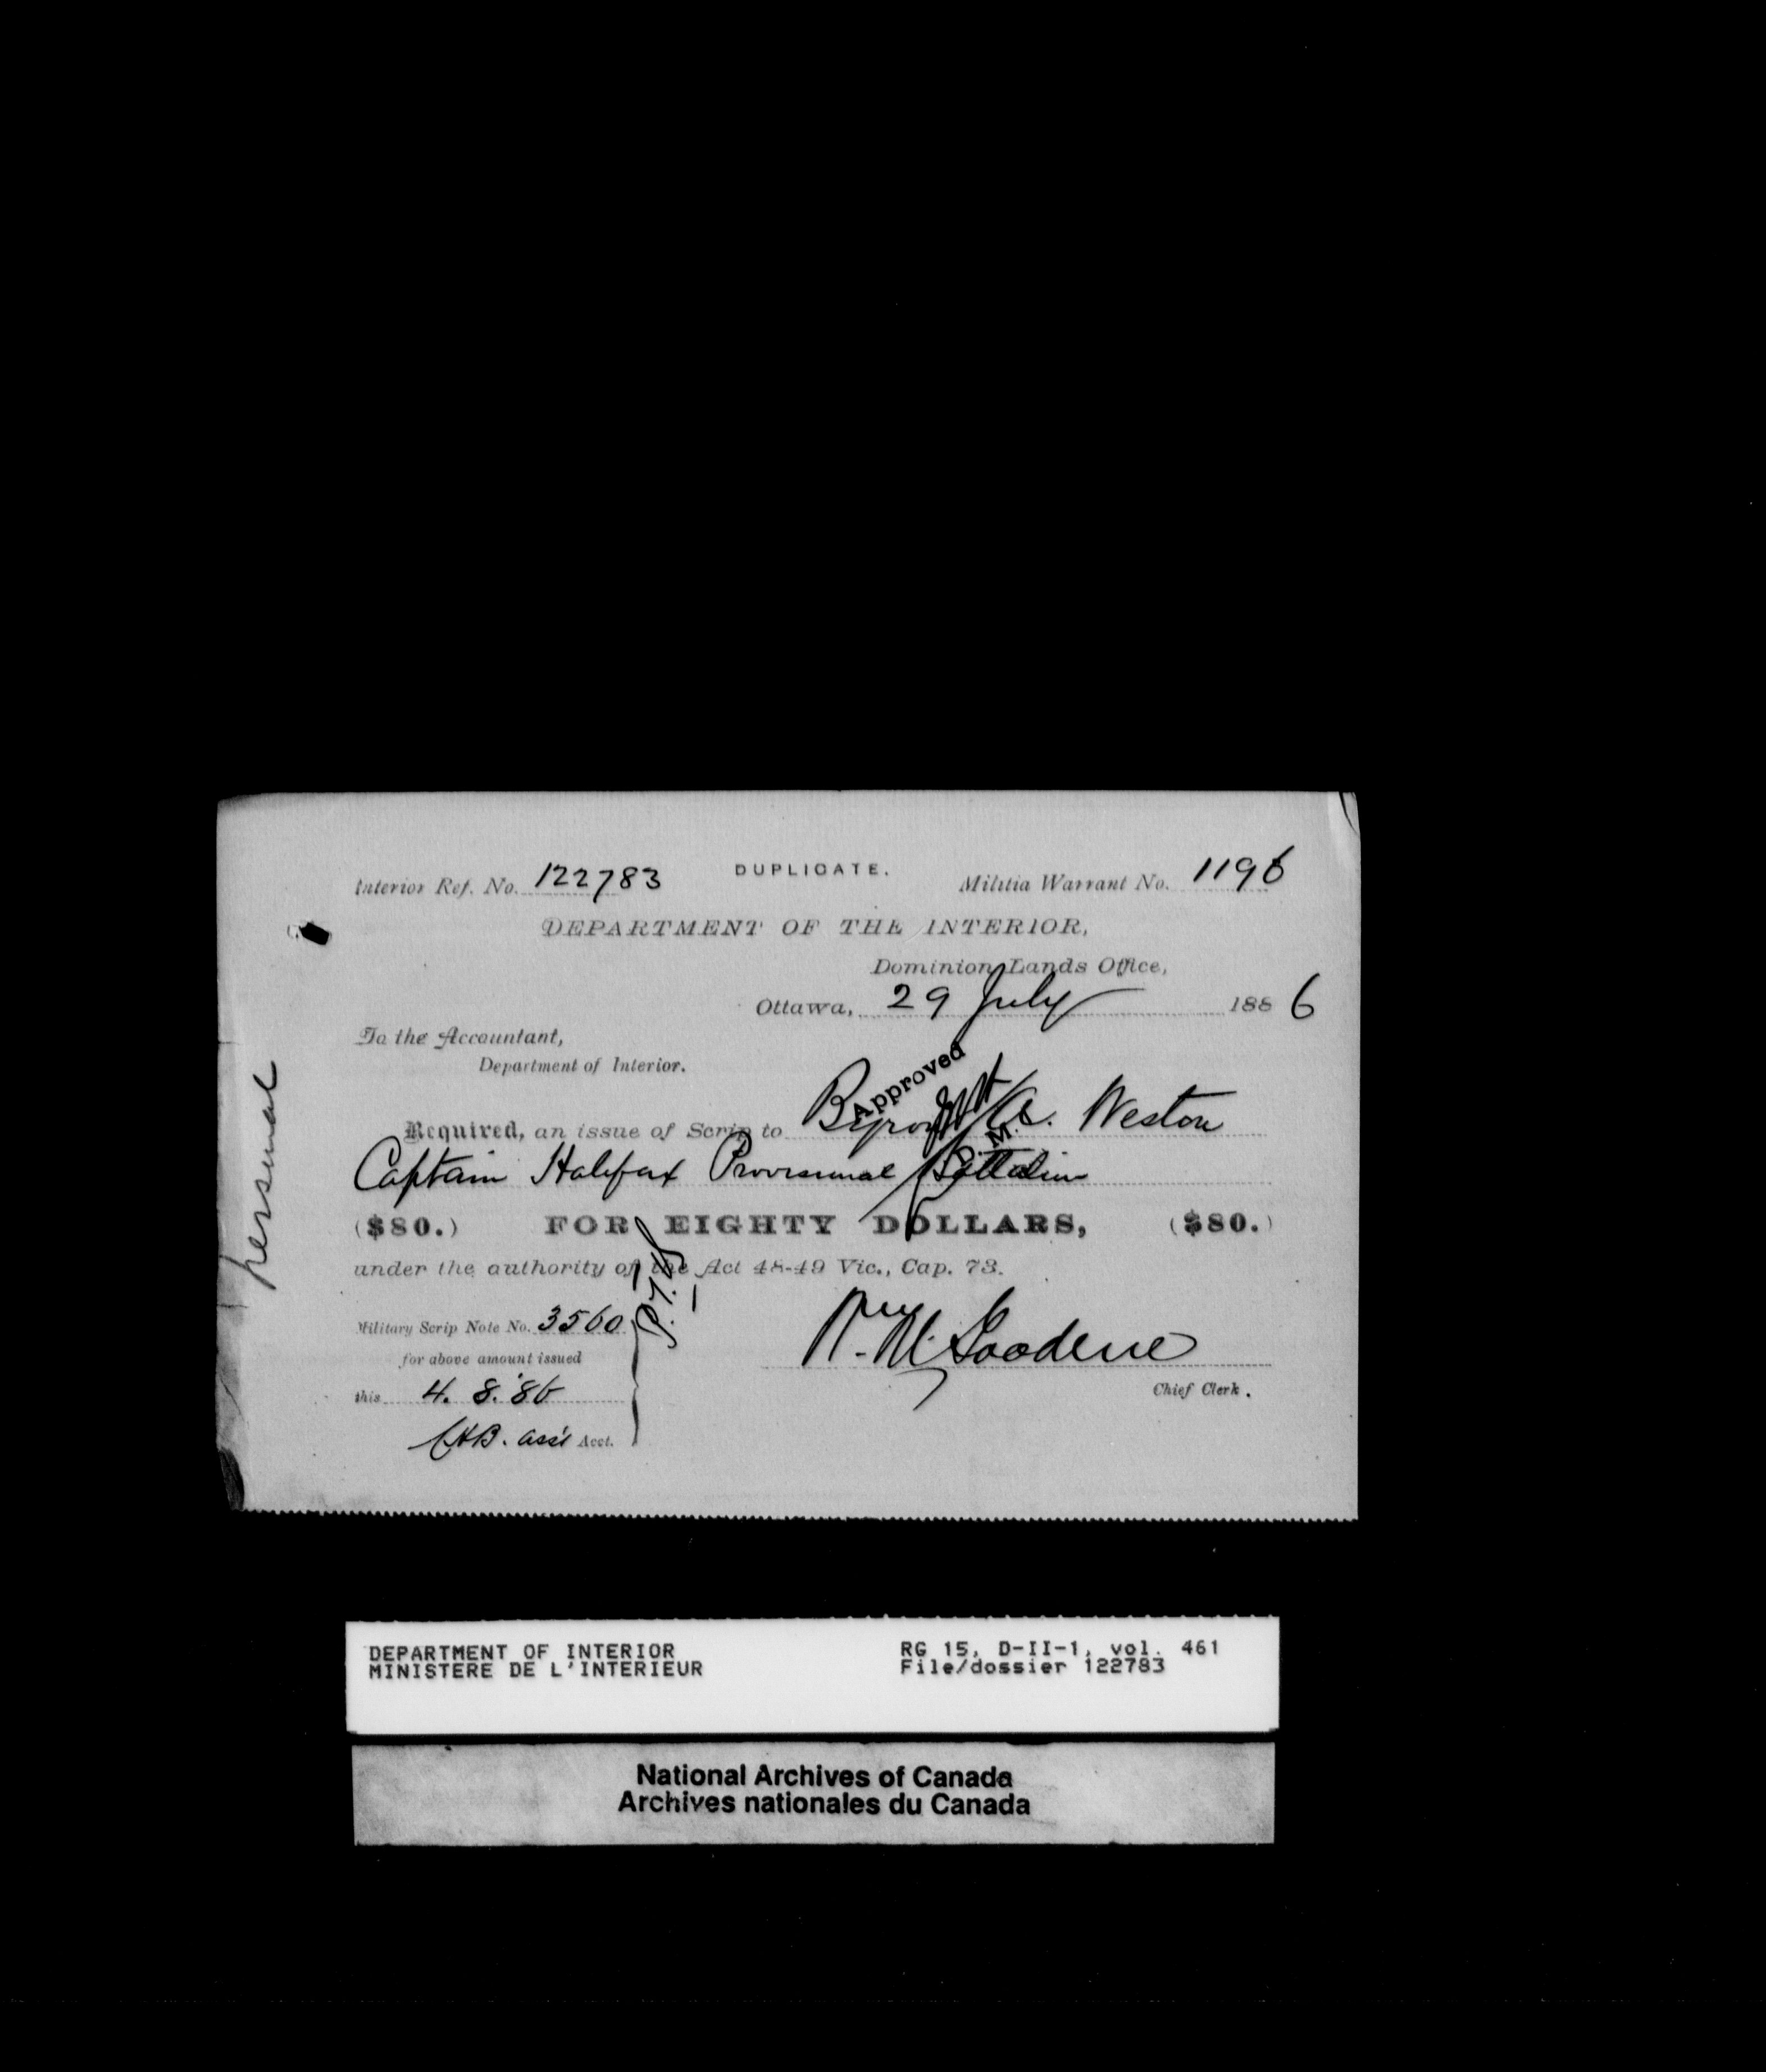 DUPLICATE.
Interior Ref. No. 122783 Militia Warrant No. 1196
DEPARTMENT OF THE INTERIOR,
Dominion Lands Office,
Ottawa, 29 July 1886
To the Accountant,
Department of Interior.
Approved
Required, an issue of Scrip to Byron A. Weston
Captain Halifax Provisional Battalion
($80.) FOR EIGHTY DOLLARS, ($80.)
under the authority of the Act 48-49 Vic., Cap. 73.
Military Scrip Note No. 3560
for above amount issued
this 4. 8. '86
Acct.
Chief Clerk.
personal
DEPARTMENT OF INTERIOR
MINISTERE DE L'INTERIEUR
RG 15, D-II-1, vol. 461
File/dossier 122783
National Archives of Canada
Archives nationales du Canada